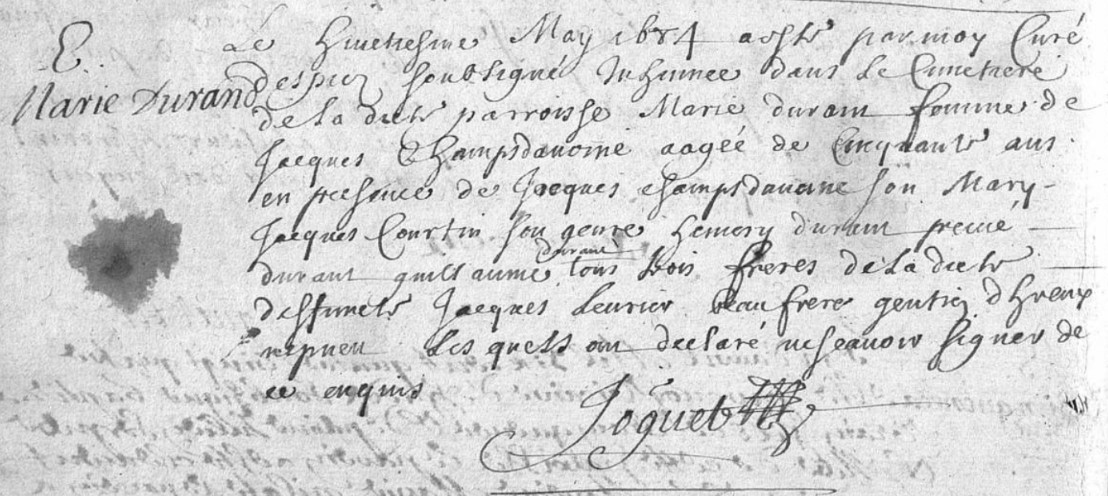 E
Marie Durand
Le huictiesme May 1684 a esté par moy Curé
despiez soubsigné Inhumee dans le Cimetiere
de la dicte parroisse Marie durant femme de
Jacques Champsdavoine aagée de Cinquante ans
en presence de Jacques champsdavoine son Mary
Jacques Courtin son genre hemory durant
durant guillaume durant tous trois freres de la dicte
deffuncte Jacques Leurier beau frere
nepueu Les quels ont declaré ne scavoir signer de
ce enquis
Joguet